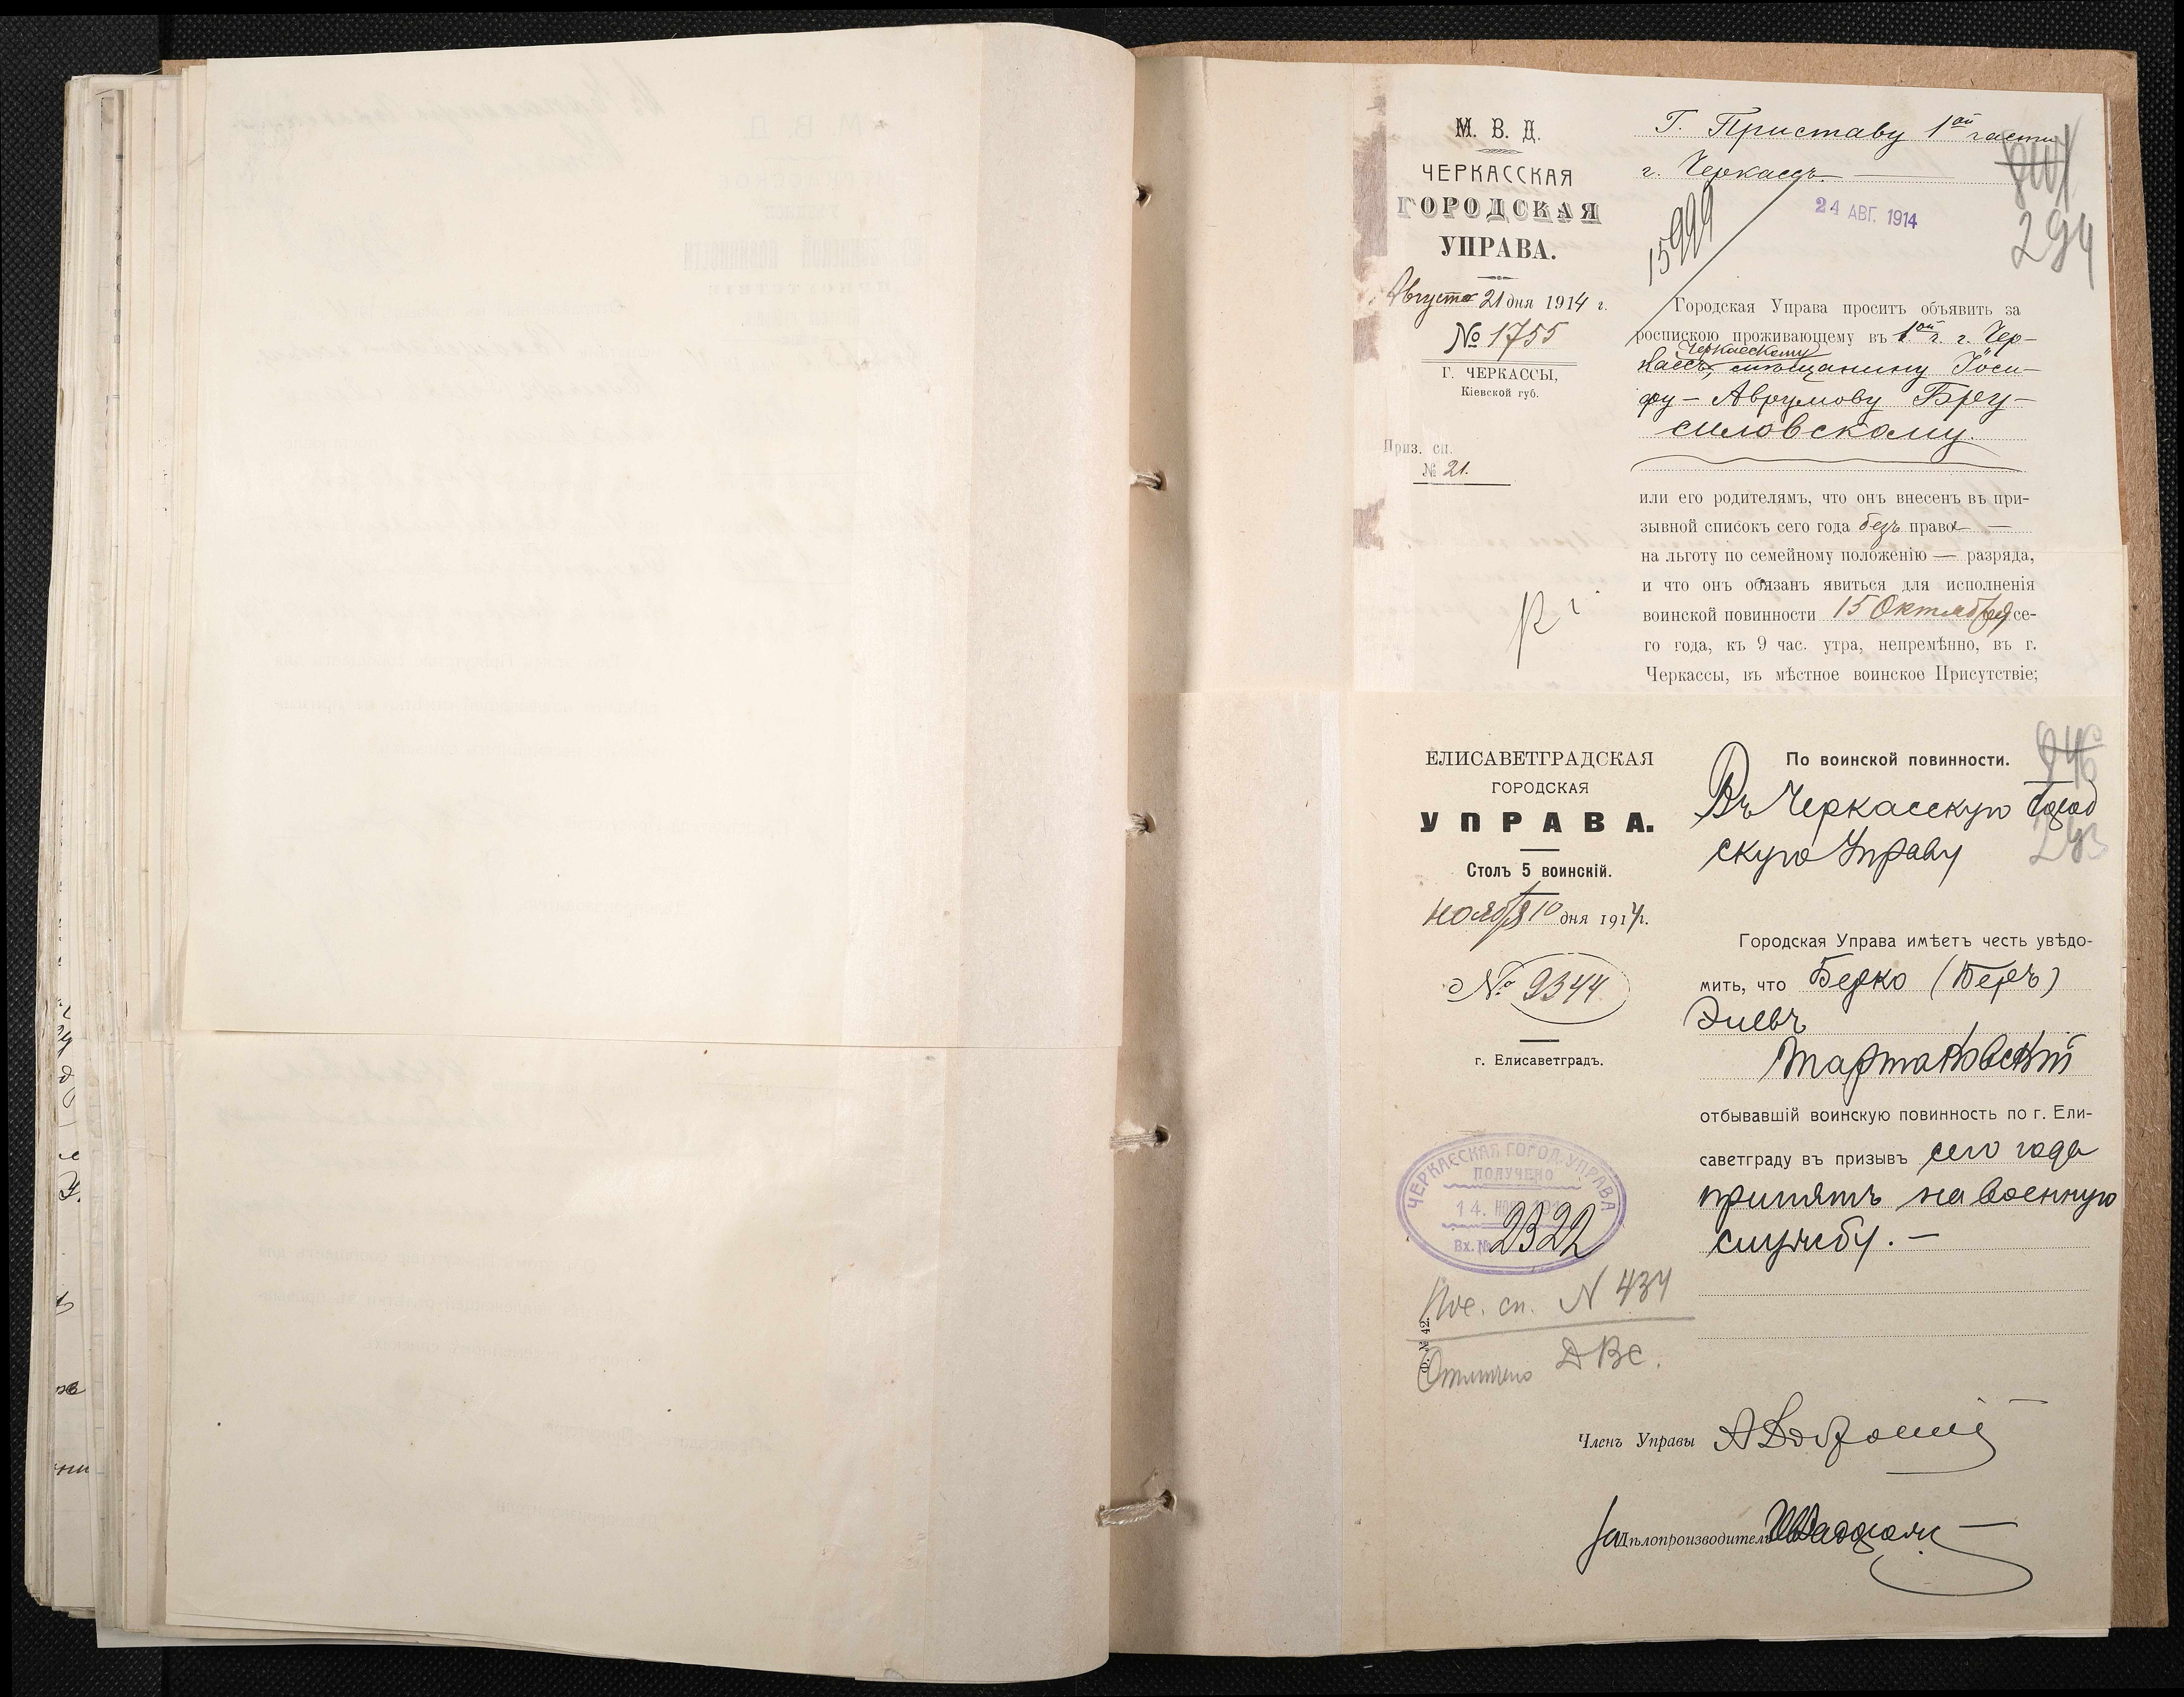 М. В. Д.
ЧЕРКАССКАЯ
ГОРОДСКАЯ
УПРАВА.
Августа 21 дня 1914 г.
№ 1755
Г. ЧЕРКАССЫ,
Кіевской губ.
Приз. сп.
№ 21.
Г. Приставу 1ой части
г. Черкассъ.
24 АВГ. 1914
15999
294
Городская Управа проситъ объявить за
роспискою проживающему въ 1ой ч. г. Чер-
Черкасскому
кассъ, мѣщанину Іоси-
фу - Аврумову Бру-
силовскому.
или его родителямъ, что онъ внесенъ въ при-
зывной списокъ сего года безъ права —
на льготу по семейному положенію — разряда,
и что онъ обязанъ явиться для исполненія
воинской повинности 15 Октября се-
го года, къ 9 час. утра, непремѣнно, въ г.
Черкассы, въ мѣстное воинское Присутствіе;
ЕЛИСАВЕТГРАДСКАЯ
ГОРОДСКАЯ
УПРАВА.
Столъ 5 воинскій.
ноября 10 дня 1914 г.
№ 9344
г. Елисаветградъ.
ЧЕРКАССКАЯ ГОРОД. УПРАВА
ПОЛУЧЕНО
14. НОЯ 191
Вх. № 2322
Пос. сп. N 434
Отмѣчено ДВС.
Ф. № 42.
По воинской повинности.
293
Въ Черкасскую Город
скую Управу
Городская Управа имѣетъ честь увѣдо-
мить, что Берко (Беръ)
Элевъ
Тартаковскій
отбывавшій воинскую повинность по г. Ели-
саветграду въ призывъ сего года
принятъ на военную
службу. —
Членъ Управы
За Дѣлопроизводитель